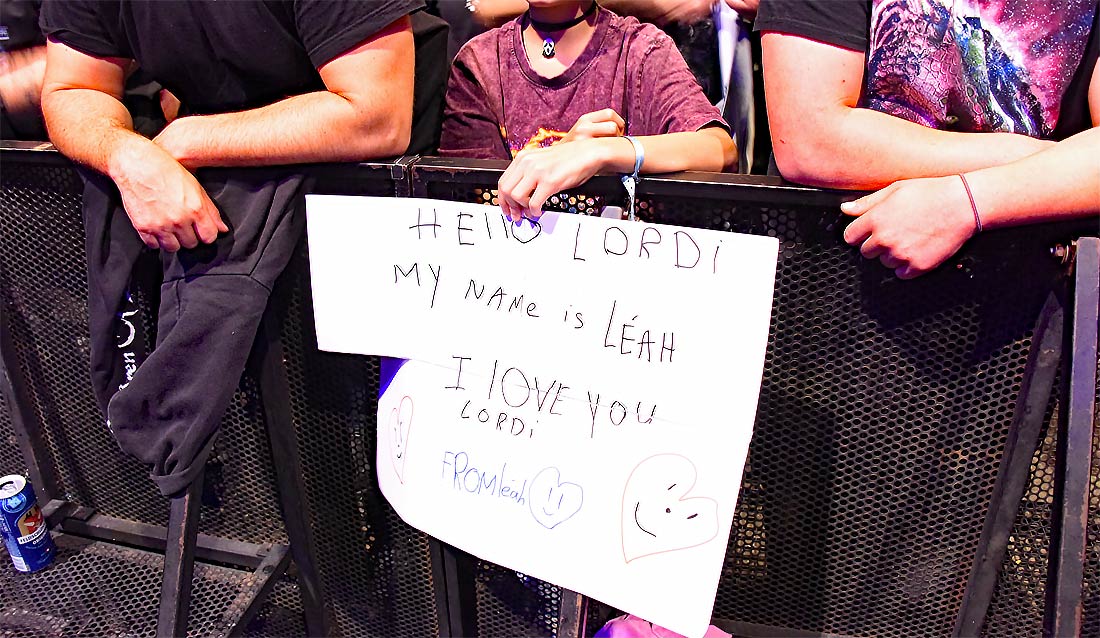 HEllO LORDi
MY NAMe is LÉAH
I lOVE YOU
LORDi
FROM leah